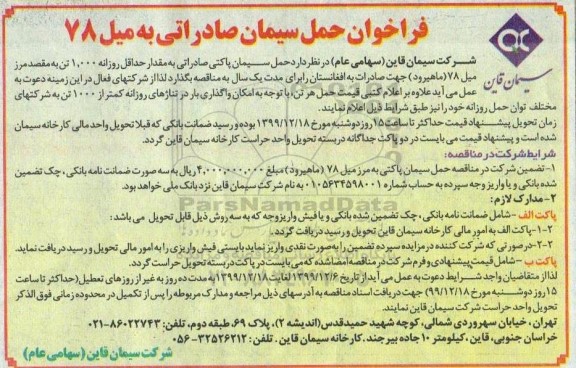 فراخوان حمل سیمان صادراتی به میل ۷۸
سیمان قاین
شرکت سیمان قاین (سهامی عام) در نظر دارد حمل سیمان پاکتی صادراتی به مقدار حداقل روزانه ۱,۰۰۰ تن به مقصد مرز
میل ۷۸ (ماهیرود) جهت صادرات به افغانستان را برای مدت یک سال به مناقصه بگذارد لذا از شرکتهای فعال در این زمینه دعوت به
عمل می آید علاوه بر اعلام کتبی قیمت حمل هر تن، با توجه به امکان واگذاری بار در تناژهای روزانه کمتر از ۱۰۰۰ تن به شرکتهای
مختلف توان حمل روزانه خود را نیز طبق شرایط ذیل اعلام نمایند.
زمان تحویل پیشنهاد قیمت حداکثر تا ساعت ۱۵ روز دوشنبه مورخ ۱۳۹۹/۱۲/۱۸ بوده و رسید ضمانت بانکی که قبلا تحویل واحد مالی کارخانه سیمان
شده است و پیشنهاد قیمت می بایست در دو پاکت جداگانه دربسته تحویل واحد حراست کارخانه سیمان قاین گردد.
شرایط شرکت در مناقصه:
۱- تضمین شرکت در مناقصه حمل سیمان پاکتی به مرز میل ۷۸ (ماهیرود) مبلغ ۴,۰۰۰,۰۰۰,۰۰۰ ریال به سه صورت ضمانت نامه بانکی، چک تضمین
شده بانکی و یا واریز وجه سپرده به حساب شماره ۰۱۰۵۶۳۴۵۹۸۰۰۱ به نام شرکت سیمان قاین نزد بانک ملی خواهد بود.
۲- مدارک لازم:
پاکت الف - شامل ضمانت نامه بانکی، چک تضمین شده بانکی و یا فیش واریز وجه که به سه روش ذیل قابل تحویل می باشد:
۲-۱- پاکت الف به امور مالی کارخانه سیمان قاین تحویل و رسید دریافت گردد.
۲-۲- درصورتی که شرکت کننده در مزایده سپرده تضمین را به صورت نقدی واریز نماید بایستی فیش واریزی را به امور مالی تحویل و رسید دریافت نماید.
پاکت ب - شامل قیمت پیشنهادی و فرم شرکت در مناقصه امضا شده که می بایست در پاکت دربسته تحویل حراست گردد.
لذا از متقاضیان واجد شرایط دعوت به عمل می آید از تاریخ ۱۳۹۹/۱۲/۶ لغایت ۱۳۹۹/۱۲/۱۸ به مدت ده روز به غیر از روزهای تعطیل (حداکثر تا ساعت
۱۵ روز دوشنبه مورخ ۹۹/۱۲/۱۸) جهت دریافت اسناد مناقصه به آدرسهای ذیل مراجعه و مدارک مربوطه را پس از تکمیل در محدوده زمانی فوق الذکر
تحویل واحد حراست شرکت سیمان قاین نمایند.
تهران، خیابان سهروردی شمالی، کوچه شهید حمید قدس (اندیشه ۲)، پلاک ۶۹، طبقه دوم، تلفن: ۸۶۰۲۲۷۴۳-۰۲۱
خراسان جنوبی، قاین، کیلومتر ۱۰ جاده بیرجند، کارخانه سیمان قاین. تلفن: ۳۲۵۲۶۲۱۲-۰۵۶
شرکت سیمان قاین (سهامی عام)
ParsNamadData